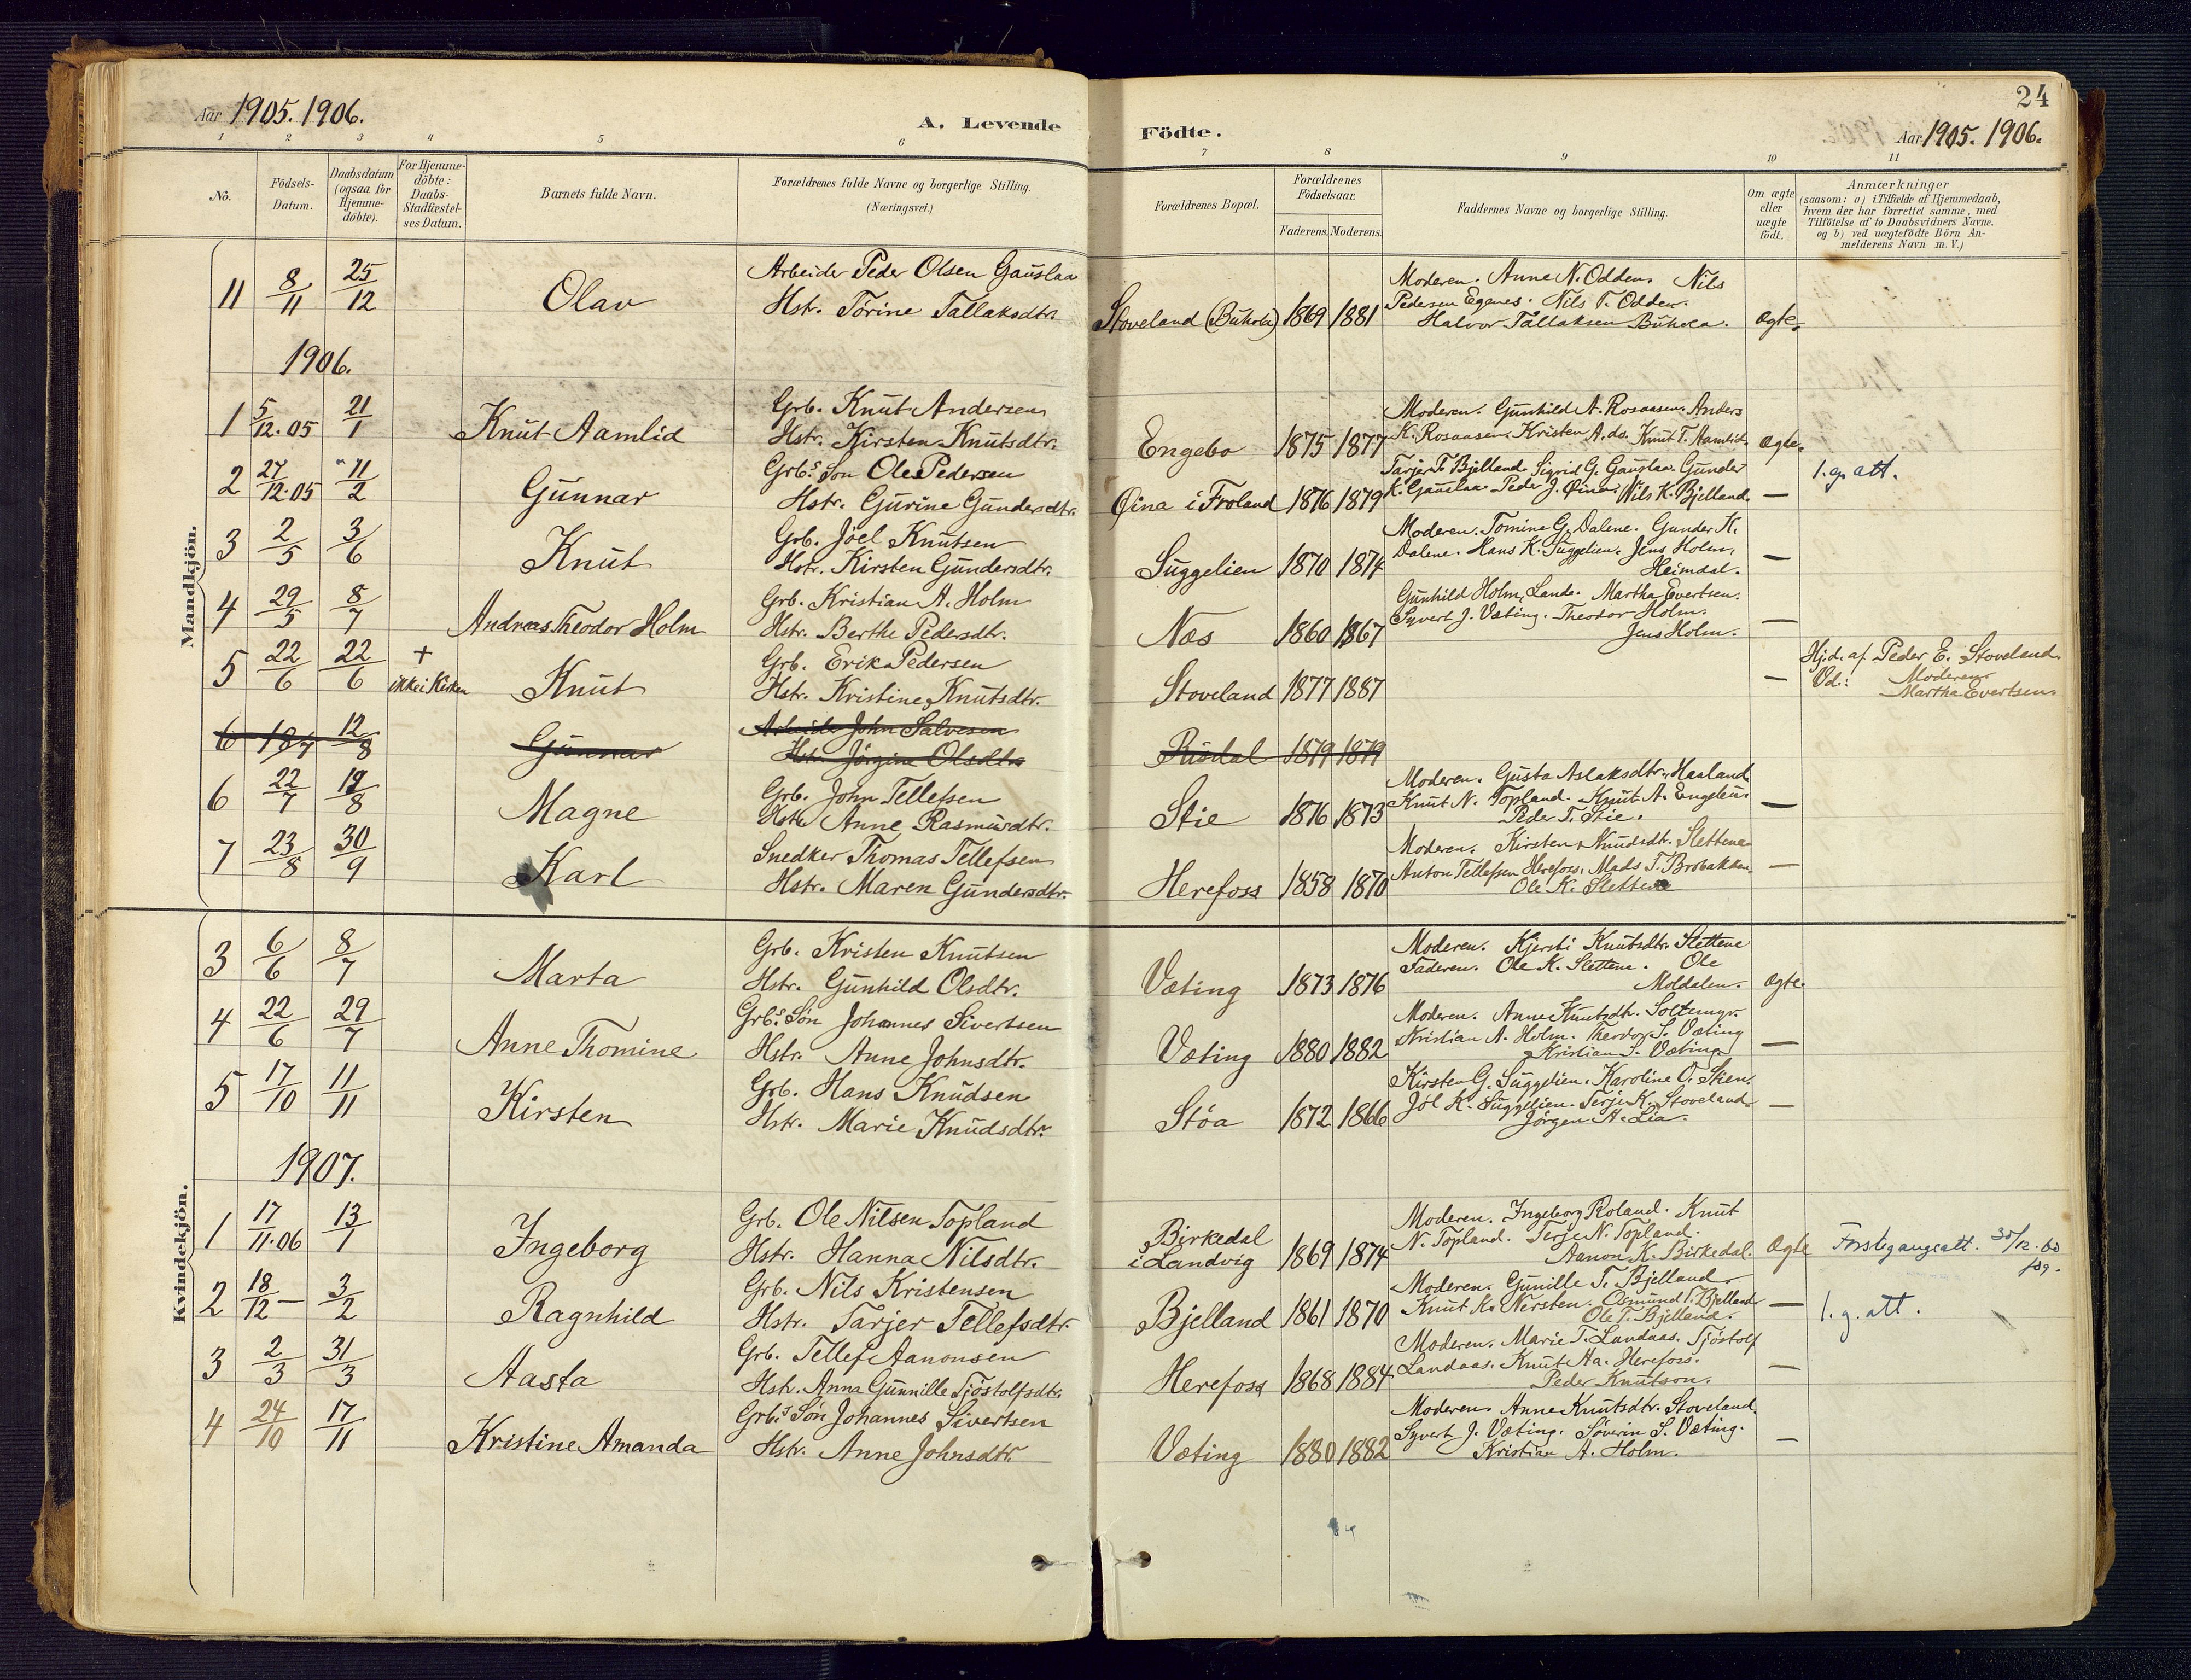 24
Aar 1905. 1906.
A. Levende Födte.
Aar 1905. 1906.
1 2 3 4 5 6 7 8 9 10 11
No.
Födsels-Datum.
Daabsdatum (ogsaa for Hjemme-döbte).
For Hjemme-döbte: Daabs-Stadfæstel-ses Datum.
Barnets fulde Navn.
Forældrenes fulde Navne og borgerlige Stilling. (Næringsvei.)
Forældrenes Bopæl.
Forældrenes Födselsaar.
Faderens. Moderens.
Faddernes Navne og borgerlige Stilling.
Om ægte eller uægte födt.
Anmærkninger
(saasom: a) i Tilfælde af Hjemmedaab,
hvem der har forrettet samme, med
Tilföielse af to Daabsvidners Navne,
og b) ved uægtefödte Börn An-
melderens Navn m. V.)
Mandkjön.
11 8/11 25/12 Olav
Arbeider Peder Olsen Gauslaa
Hstr. Törine Tallaksdtr.
Stoveland 1869 1881
Moderen. Anne N. Odden. Nils
Pedersen Egenes. Nils T. Odden.
Halvor Tallaksen
Ægte.
1906.
1 5/12.05 21/1 Knut Aamlid
Grb. Knut Andersen
Hstr. Kirsten Knutsdtr.
Engebo 1875 1877
Moderen. Gunhild A. Rosaasen. Anders
K. Rosaasen. Kristen A. do. Knut T. Aamlid.
Ægte.
2 27/12.05 11/2 Gunnar
Grb.s Søn Ole Pedersen
Hstr. Gurine Gundersdtr.
Øina i Froland 1876 1879
Tarjer T. Bjelland. Sigrid G. Gauslaa. Gunder
K. Gauslaa. Peder J. Nils K. Bjelland.
—
1. g. att.
3 2/5 3/6 Knut
Grb. Jöel Knutsen
Hstr. Kirsten Gundersdtr.
Suggelien 1870 1874
Moderen. Tomine G. Dalene. Gunder K.
Dalene. Hans K. Suggelien. Jens Holm,
Heimdal.
—
4 29/5 8/7 Andreas Theodor Holm
Grb. Kristian A. Holm
Hstr. Berthe Pedersdtr.
Næs 1860 1867
Gunhild Holm, Lande. Martha Evertsen.
Syvert J. Væting. Theodor Holm.
Jens Holm.
—
5 22/6 22/6 + ikke i Kirken Knut
Grb. Erik Pedersen
Hstr. Kristine Knutsdtr.
Stoveland 1877 1887
—
Hj.d. af Peder E. Stoveland.
Vd.: Moderen
Martha Evertsen
6 18/7 12/8 Gunnar
Arbeider John Salvesen
Hstr. Jörgine Olsdtr.
Risdal 1879 1879
6 22/7 19/8 Magne
Grb. John Tellefsen
Hstr. Anne Rasmusdtr.
Stie 1876 1873
Moderen. Gusta Aslaksdtr. Haaland
Knut N. Topland. Knut A.
Peder T. Stie.
—
7 23/8 30/9 Karl
Snedker Thomas Tellefsen
Hstr. Maren Gundersdtr.
Herefoss 1858 1870
Moderen. Kirsten Knudsdtr. Slettene
Anton Tellefsen Herefoss. Mads T. Brobakken.
Ole K. Slettene
—
Kvindekjön.
3 6/6 8/7 Marta
Grb. Kristen Knutsen
Hstr. Gunhild Olsdtr.
Væting 1873 1876
Moderen. Kjersti Knutsdtr. Slettene
Faderen. Ole K. Slettene. Ole
Moldalen.
Ægte.
4 22/6 29/7 Anne Thomine
Grb.s Søn Johannes Sivertsen
Hstr. Anne Johnsdtr.
Væting 1880 1882
Moderen. Anne Knutsdtr.
Kristian A. Holm. Theodor S. Væting
Kristian S. Væting
—
5 17/10 11/11 Kirsten
Grb. Hans Knudsen
Hstr. Marie Knudsdtr.
Stöa 1872 1866
Kirsten G. Suggelien. Karoline O. Stien.
Jöl K. Suggelien. Terje K. Stoveland.
Jörgen A. Lia.
—
1907.
1 17/11.06 13/1 Ingeborg
Grb. Ole Nilsen Topland
Hstr. Hanna Nilsdtr.
Birkedal i Landvig 1869 1874
Moderen. Ingeborg Roland. Knut
N. Topland. Terje N. Topland.
Aanon K. Birkedal.
Ægte
Förstegangsatt. 30/12.60
2 18/12 — 3/2 Ragnhild
Grb. Nils Kristensen
Hstr. Tarjer Tellefsdtr.
Bjelland 1861 1870
Moderen. Gunille T. Bjelland
Knut K. Nersten. Osmund T. Bjelland
Ole T. Bjelland.
—
1. g. att.
3 2/3 31/3 Aasta
Grb. Tellef Aanonsen
Hstr. Anna Gunnille Tjöstolfsdtr.
Herefoss 1868 1884
Moderen. Marie T. Landaas. Tjöstolf
Landaas. Knut Aa. Herefoss.
Peder Knutson.
—
4 24/10 17/11 Kristine Amanda
Grb.s Søn Johannes Sivertsen
Hstr. Anne Johnsdtr.
Væting 1880 1882
Moderen Anne Knutsdtr. Stoveland.
Syvert J. Væting. Söverin S. Væting.
Kristian A. Holm.
—